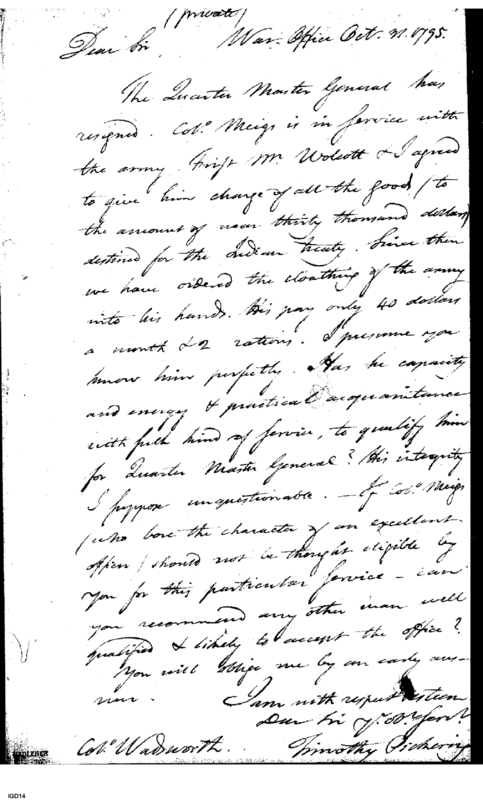 (private)
Dear Sir, War-Office Oct. 21. 1795.
The Quarter Master General has
resigned. Colo. Meigs is in service with
the army. First Mr. Wolcott & I agreed
to give him charge of all the goods (to
the amount of near thirty thousand dollars)
destined for the Indian treaty. Since then
we have ordered the cloathing of the army
into his hands. His pay only 40 dollars
a month & 2 rations. I presume you
know him perfectly. Has he capacity
and energy & practical acquaintance
with such kind of service, to qualify him
for Quarter Master General? His integrity
I suppose unquestionable. — If Colo. Meigs
(who bore the character of an excellent
officer) should not be thought eligible by
you for this particular service — can
you recommend any other man well
qualified & likely to accept the office?
You will oblige me by an early ans-
wer. I am with respect & esteem
Dear Sir yr. ob. servt.
Colo. Wadsworth. Timothy Pickering
IGD14